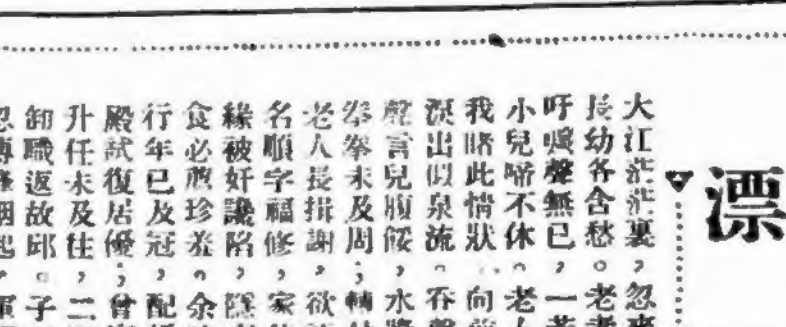 漂
大江茫茫裏，忽
長幼各含愁。老者
吁嘆聲無已，一
小兒啼不休。老
我睹此情狀，向
淚出似泉流。吞
聲言兒腹餒，水
拳拳未及周；轉
老人長揖謝，欲
名順字福修，家
緣被奸讒陷，隱
食必薦珍羞。余
行年已及冠，配
殿試復居優；曾
升任未及往，二
卸職返故邱。子
忽 烟起，軍